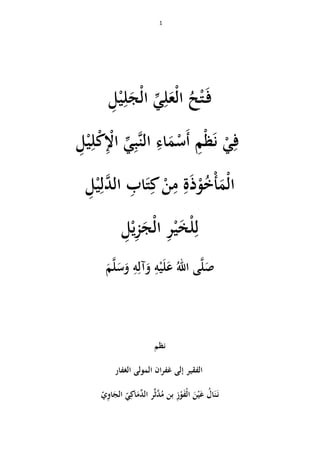 1
فَتْحُ الْعَلِيِّ الْجَلِيْلِ
فِيْ نَظْمِ أَسْمَاءِ النَّبِيِّ الْإِكْلِيْلِ
الْمَأْخُوْذَةِ مِنْ كِتَابِ الدَّلِيْلِ
لِلْخَيْرِ الْجَزِيْلِ
صَلَّى اللهُ عَلَيْهِ وَآلِهِ وَسَلَّمَ
نظم
الفقير إلى غفران المولى الغفار
نَنَالُ عَيْنَ الْفَوْزِ بن مُدَّثِّر الدِّمَاكِيّ الجَاوِيْ